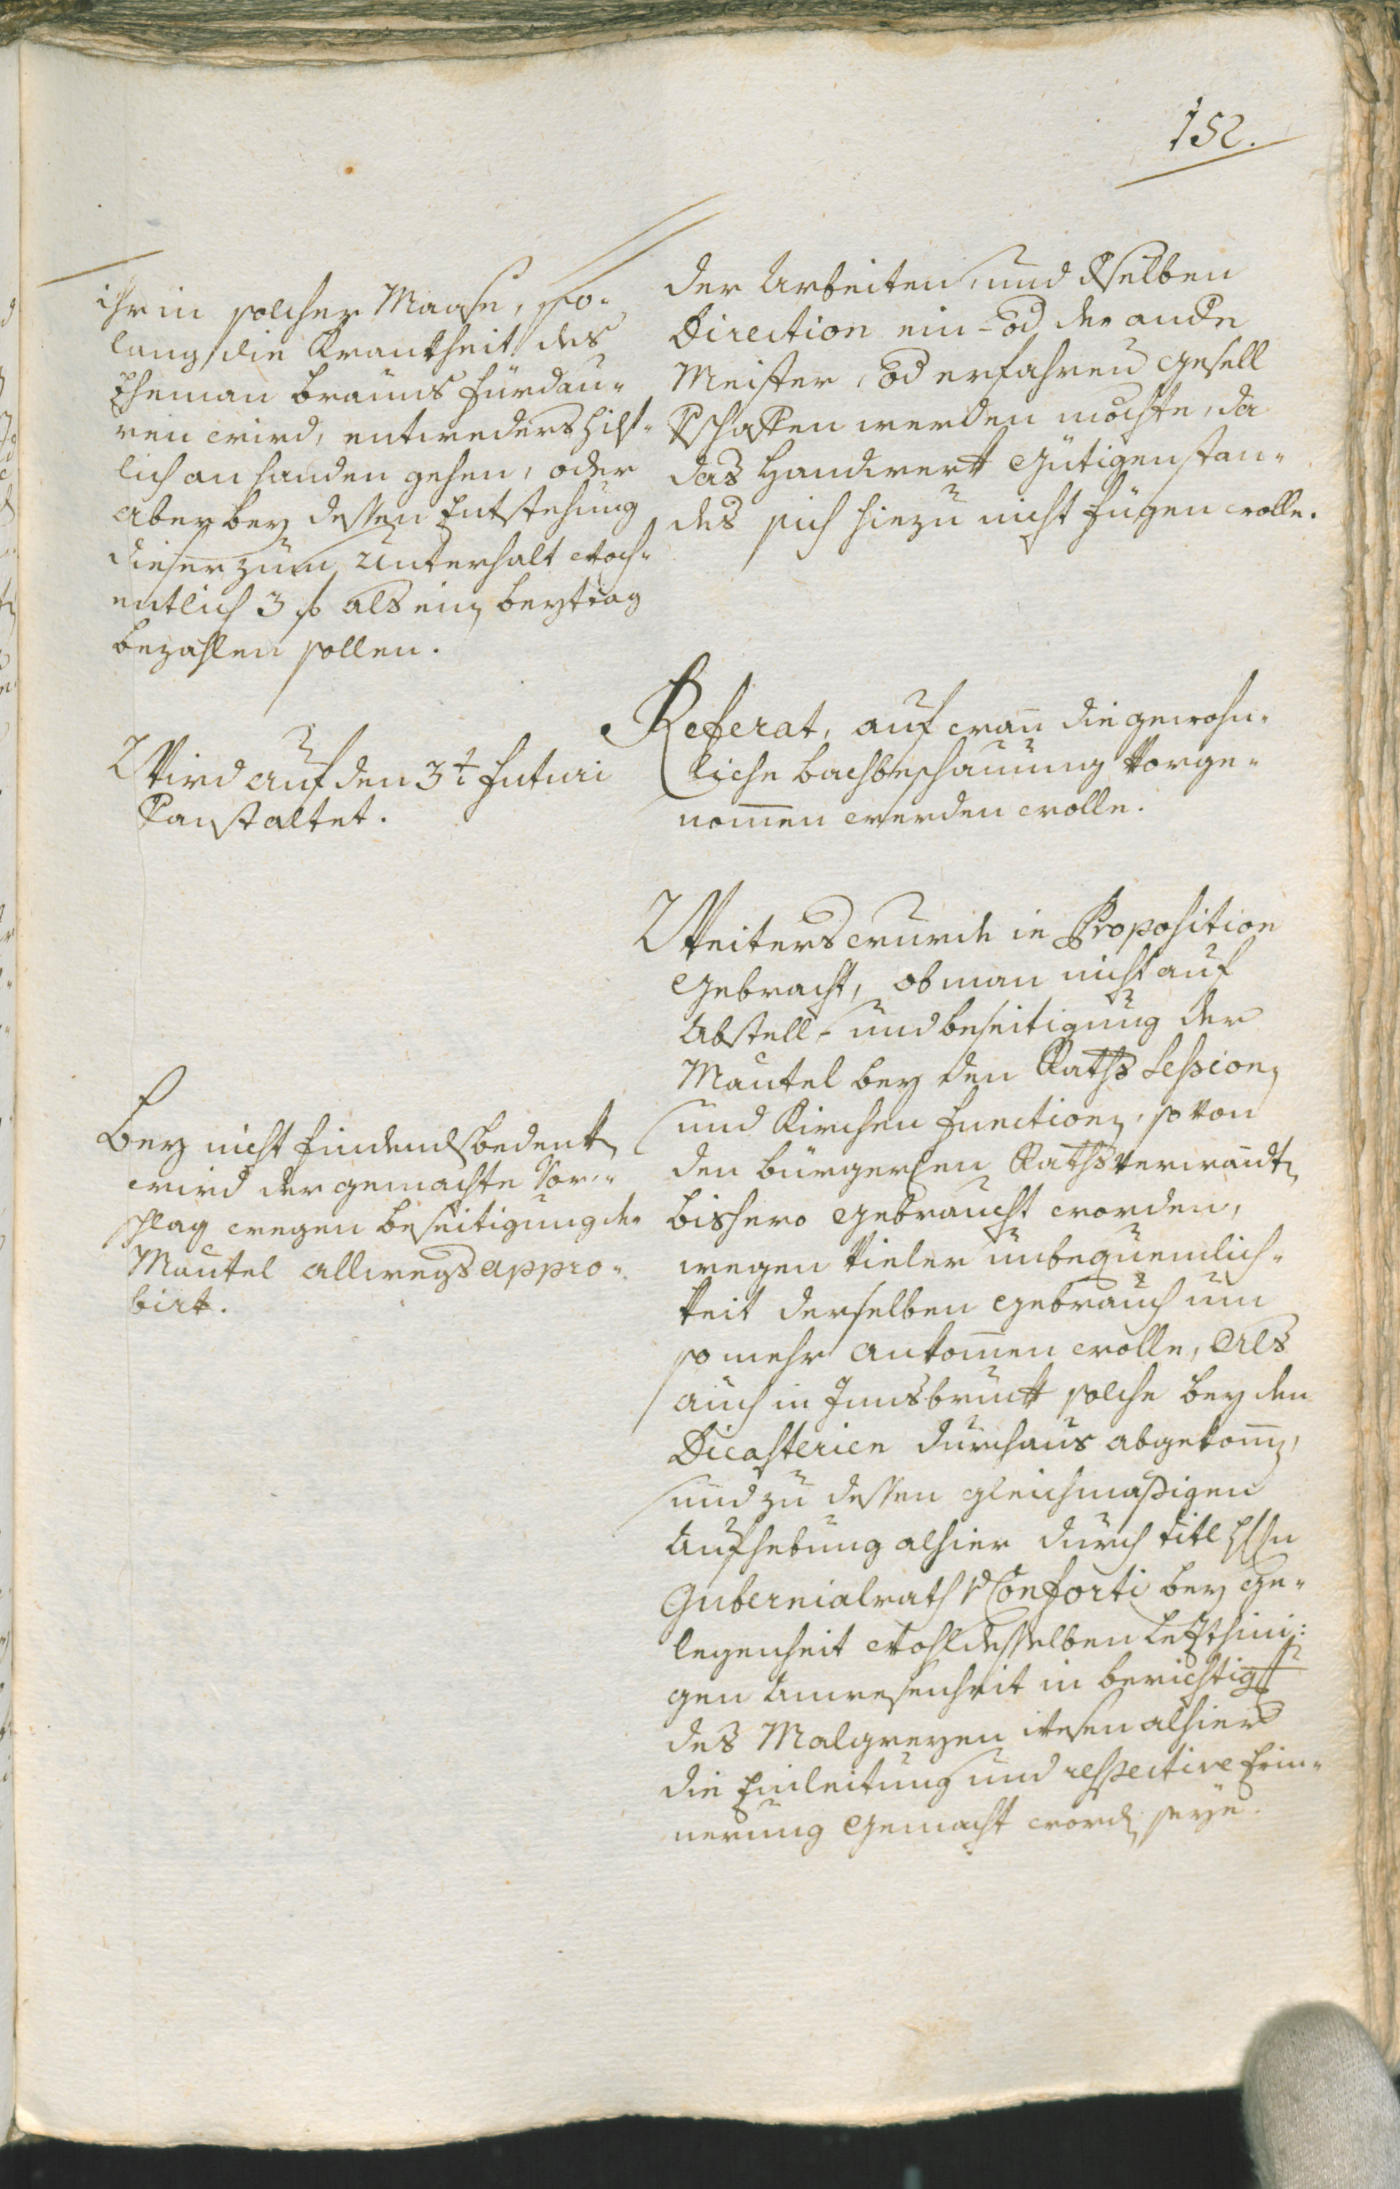 152.
ihr in solcher Maase, so-
lang die Krankheit des
Eheman Brauns fürdau-
ren wird, entweders hilf-
lich an handen gehen, oder
aber bey dessen Entstehung
dieser zum Unterhalt woch-
entlich 3 f als ein beytrag
bezahlen sollen.
Wird auf den 3t futuri
Vanstaltet.
Bey nicht findend bedenk
wird der gemachte Vor-
schlag wegen beseitigung der
Mäntel allwegs appro-
birt.
der Arbeiten, und dselben
Direction ein- od der ande
Meister, od erfahren gesell
Vschaffen werden möchte, da
das Handwerk gütigenstan-
des sich hiezu nicht fügen wolle.
Referat, auf wann die gewohn-
liche bachbeschauung vorge-
nommen werden wolle.
Weiters wurde in Proposition
gebracht, ob man nicht auf
Abstell- und beseitigung der
Mäntel bey den Raths Session
und Kirchen Function, so von
den bürgerlen Rathsverwandt
bishero gebraucht worden,
wegen vieler unbequemlich-
keit derselben gebrauch um
so mehr ankommen wolle, als
auch in Innsbruck solche bey den
Dicasterien durchaus abgekomm,
und zu dessen gleichmäßigen
Aufhebung alhier durch titl HHn
Gubernialrath v Conforti bey ge-
legenheit wohldesselben letzthini-
gen Anwesenheit in berichtig
des Malgreyen wesen alhier
die Einleitung und respective Erin-
nerung gemacht word seye.